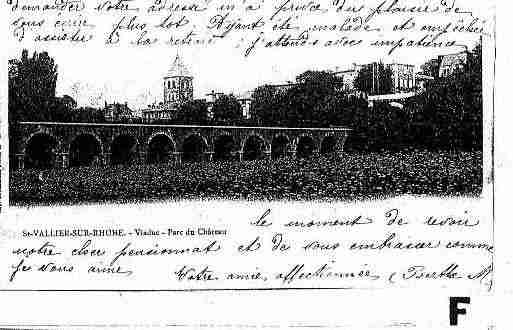 demander votre adresse m'a privée du plaisir de
vous écrire plus tôt. Ayant été malade et empêchée
d'assister à la retraite j'attends avec impatience
St-VALLIER-SUR-RHONE. - Viaduc - Parc du Château
le moment de revoir
notre cher pensionnat et de vous embrasser comme
je vous aime Votre amie affectionnée (Berthe M)
F